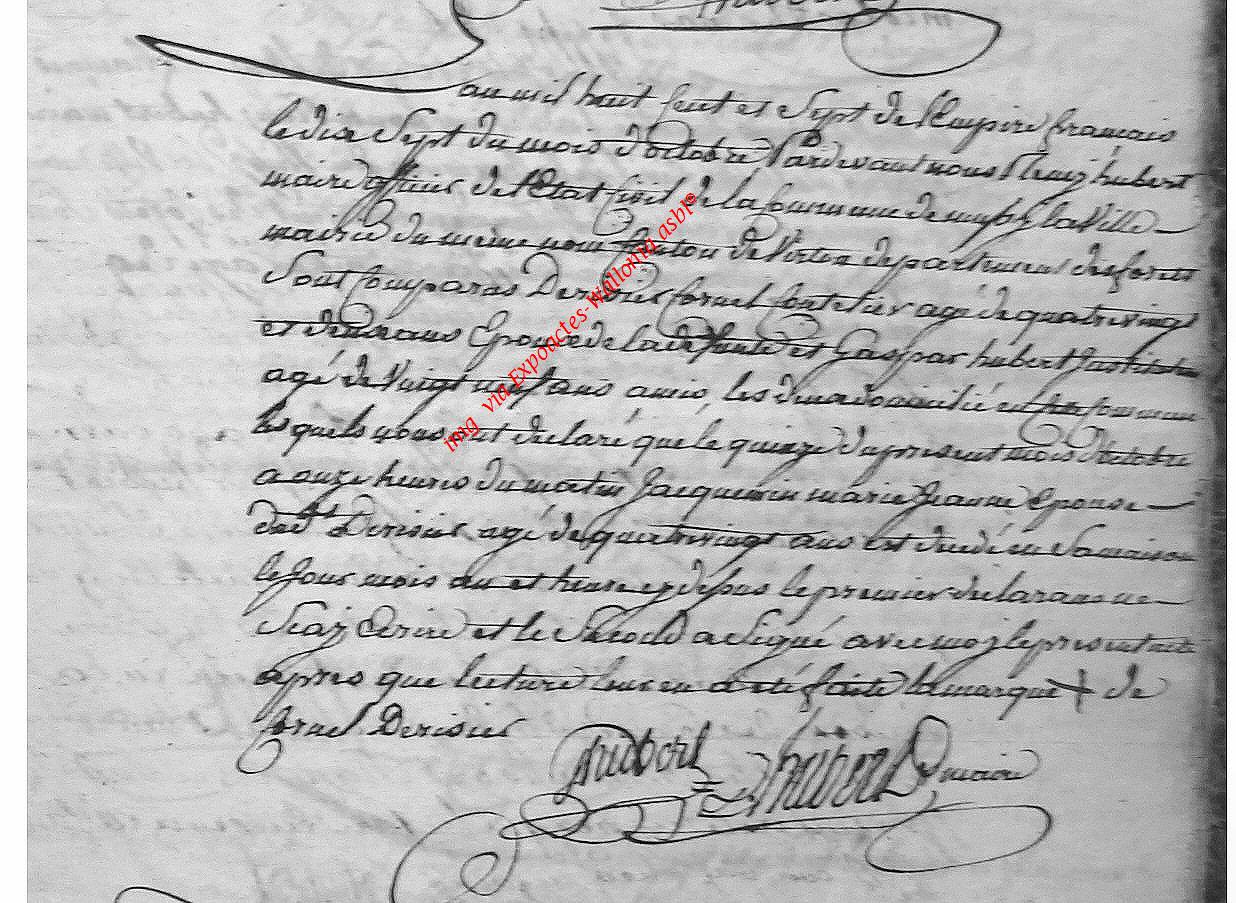 hubert
au mil huit cent et Sept de l'Empire francais
le dix Sept du mois d'octobre Pardevant nous hubert
maire officier de l'Etat Civil de la Commune de mussy la Ville
mairie du meme nom Canton de Virton departement des forets
Sont Comparus Derisies Cornel agé de quatrevingt
et deux ans Epoux de la defunte et Gaspar hubert Instituteur
agé de Vingt neuf ans amis, les deux domicilié en Commune
lesquels nous ont declaré que le quinze du present mois d'octobre
a onze heures du matin Jacquemin marie Jeanne Epouse
dudt Derisies agé de quatrevingt ans est decedé en Sa maison
le Jour mois an et heure cydessus le premier declarant ne
Scait Ecrire et le Second a Signé avec moy le present acte
apres que lecture leur en a eté faite la marque + de
Cornel Derisies
hubert
hubert maire
img via Expoactes-Wallonia asbl°